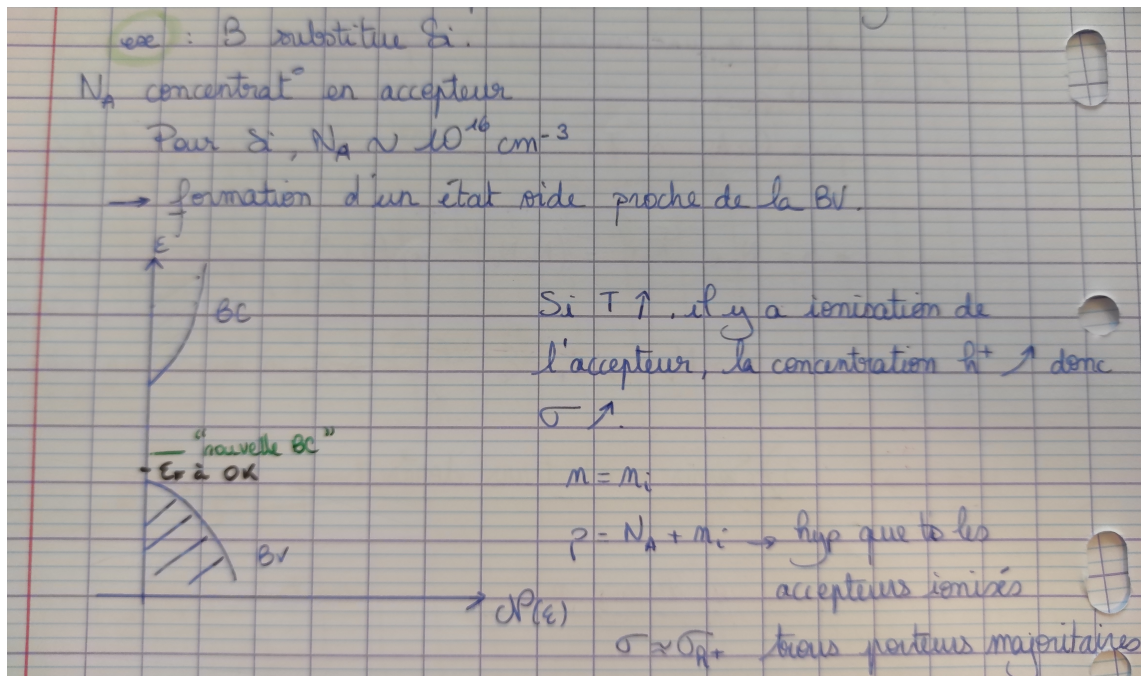 exe : B substitue Si.
N_A concentrat° en accepteur
Pour Si, N_A ~ 10^16 cm^-3
→ formation d'un état vide proche de la BV.
ε
BC
Si T ↑, il y a ionisation de
l'accepteur, la concentration h^+ ↗ donc
σ ↗.
"nouvelle BC"
ε_F à 0K
n = n_i
p = N_A + n_i → hyp que ts les
accepteurs ionisés
BV
N(ε)
σ ≈ σ_h+ trous porteurs majoritaires